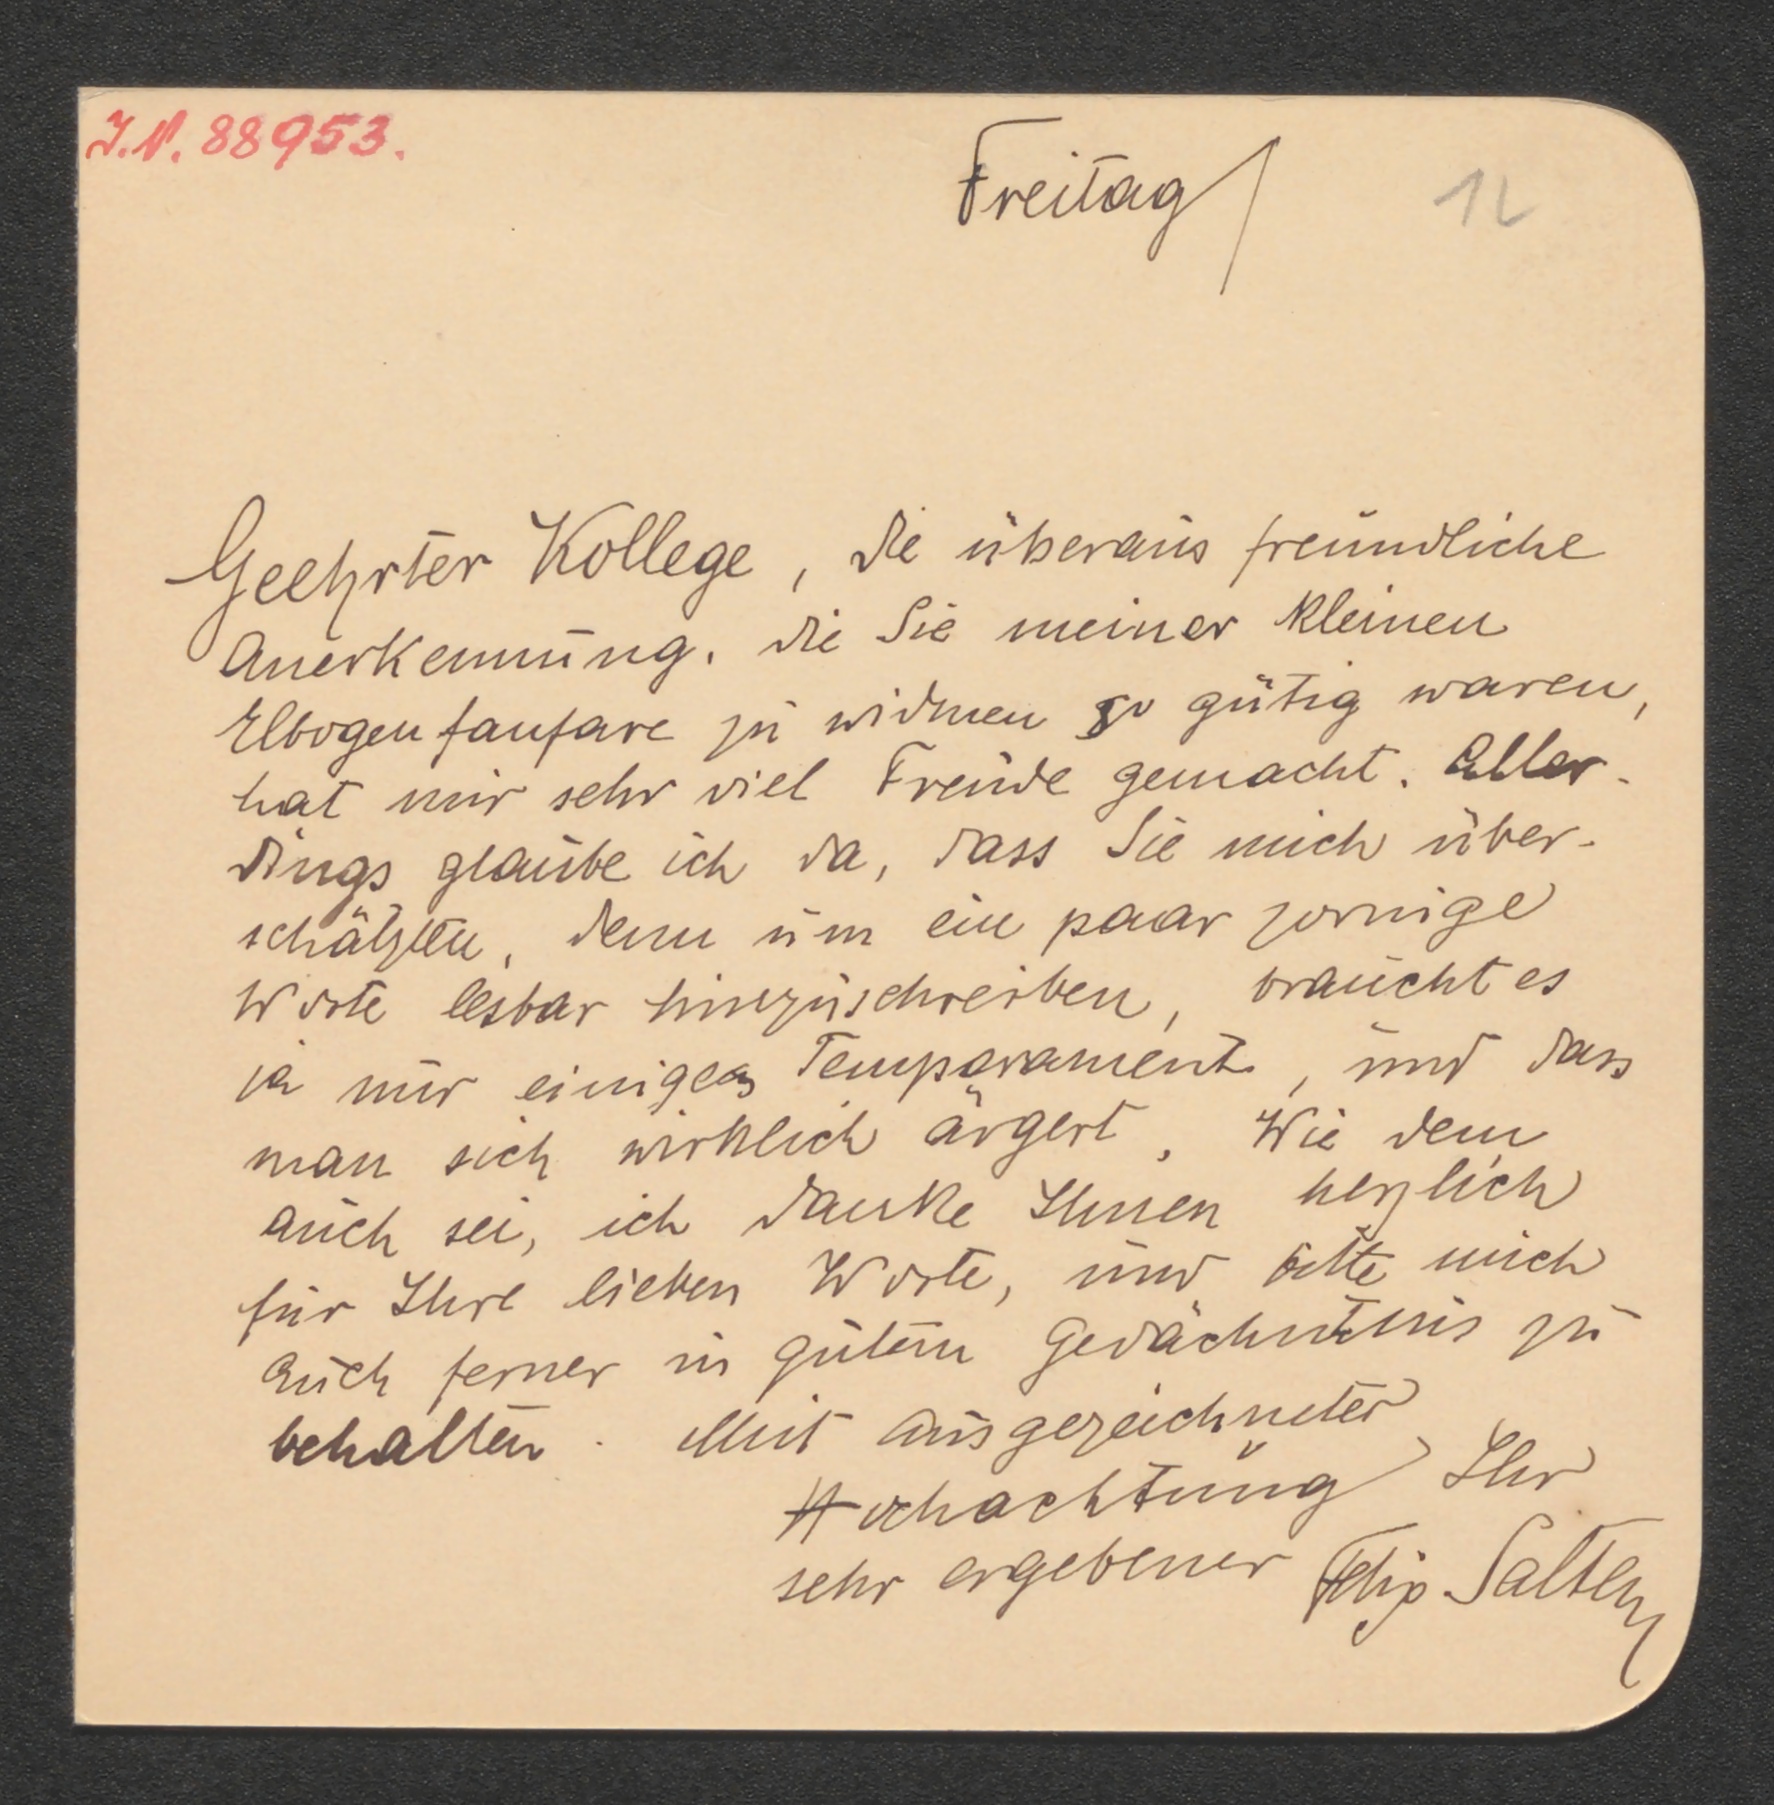 J.N. 88953.
Freitag/
12
Geehrter Kollege, die überaus freundliche
Anerkennung, die Sie meiner kleinen
Elbogenfanfare zu widmen so gütig waren,
hat mir sehr viel Freude gemacht. Aller-
dings glaube ich da, dass Sie mich über-
schätzten, denn um ein paar zornige
Worte lesbar hinzuschreiben, braucht es
ja nur einiges Temparament, und dass
man sich wirklich ärgert. Wie dem
auch sei, ich danke Ihnen herzlich
für Ihre lieben Worte, und bitte mich
auch ferner in gutem Gedächtnis zu
behalten. Mit ausgezeichneter
Hochachtung Ihr
sehr ergebener Felix Salten